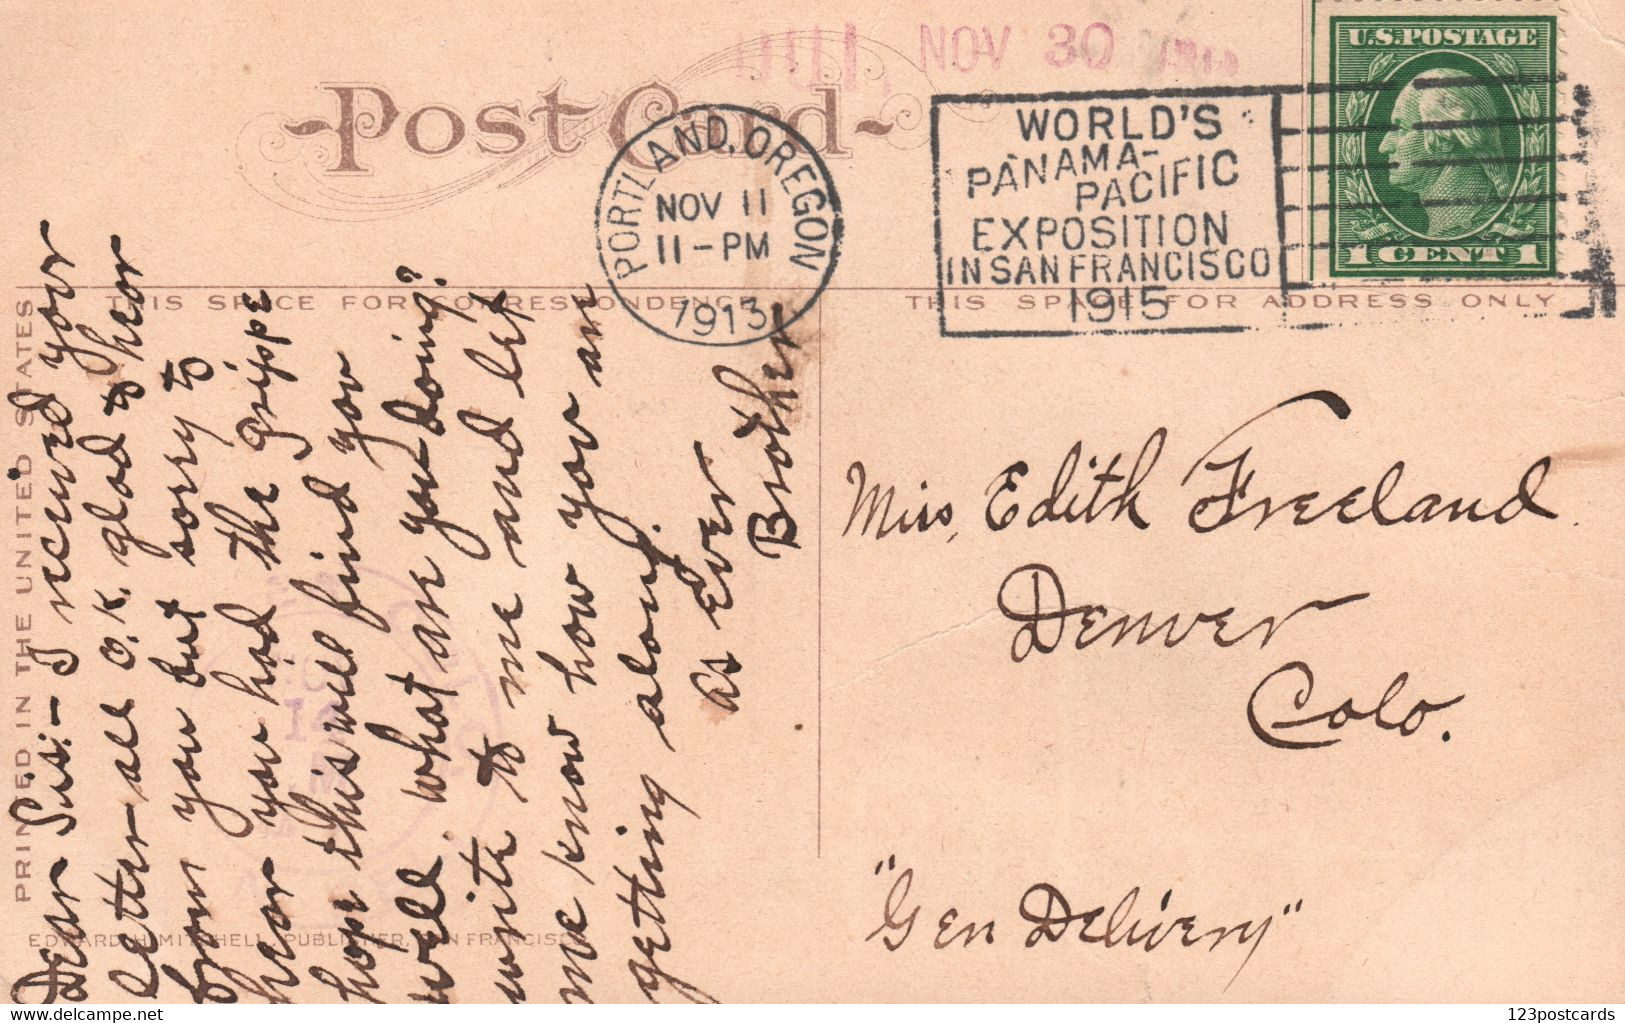 NOV 30
U.S. POSTAGE
1 CENT 1
Post Card
PORTLAND, OREGON
NOV 11
11-PM
1913
WORLD'S
PANAMA-
PACIFIC
EXPOSITION
IN SAN FRANCISCO
1915
THIS SPACE FOR CORRESPONDENCE
THIS SPACE FOR ADDRESS ONLY
PRINTED IN THE UNITED STATES
Dear Sis:- I recieved your
letter all O.K. glad to hear
from you but sorry to
hear you had the grippe
hope this will find you
well. what are you doing?
write to me and let
me know how you are
getting along.
as Ever
Brother
Miss, Edith Freeland
Denver
Colo.
"Gen Delivery"
EDWARD H. MITCHELL, PUBLISHER, SAN FRANCISCO
delcampe.net
123postcards